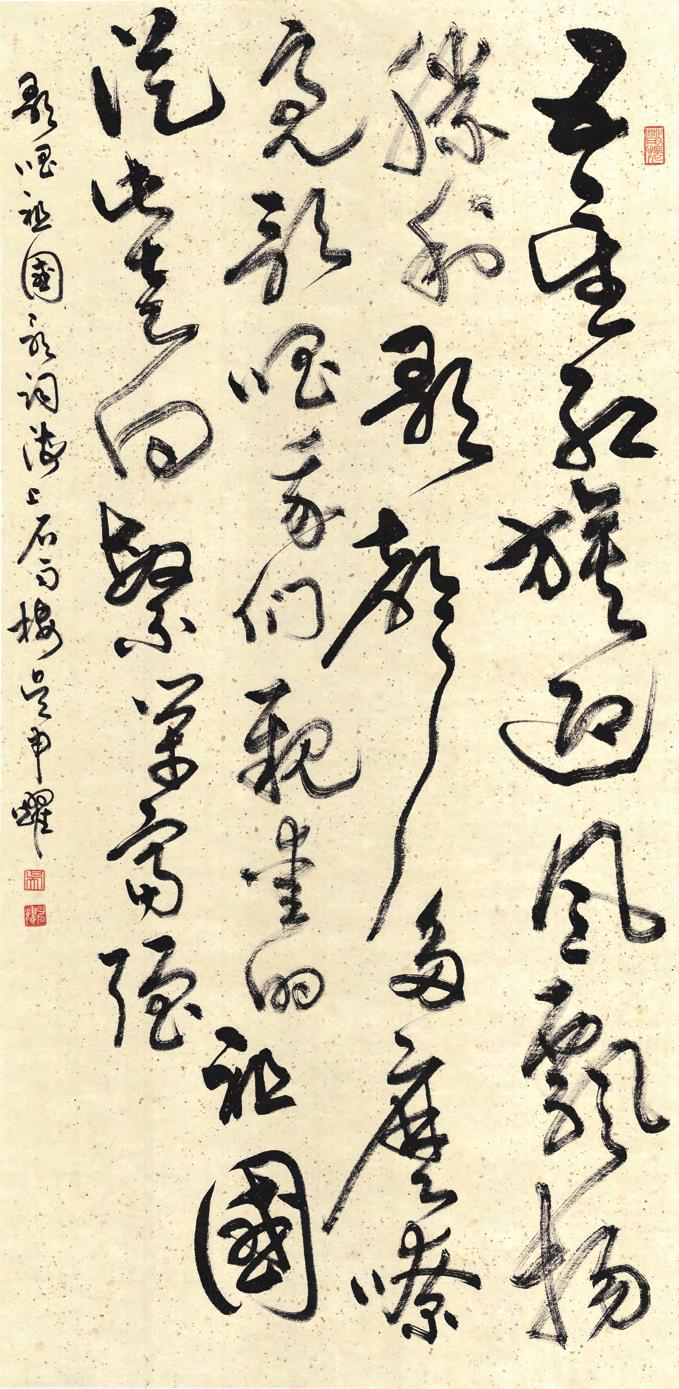 五星紅旗迎風飄揚
勝利歌聲多麼嘹
亮歌唱我們親愛的祖國
從此走向繁榮富強
歌唱祖國歌詞海上石樓吳申耀